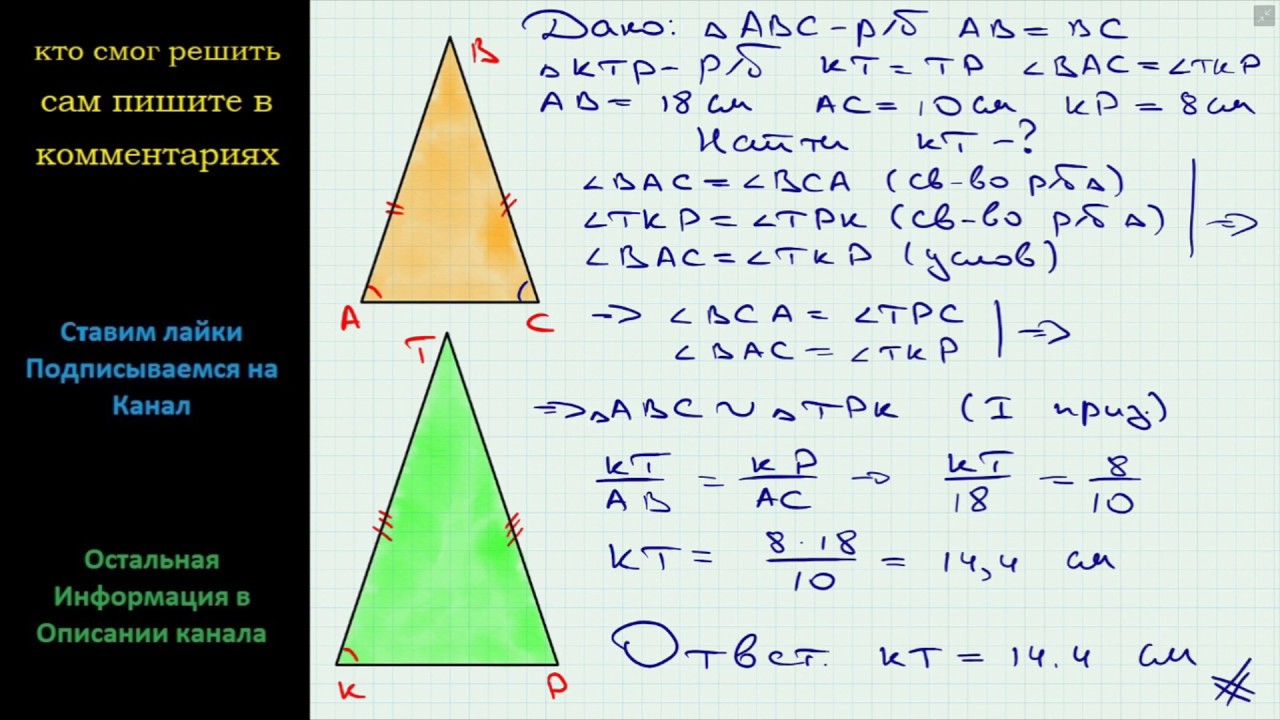 кто смог решить
сам пишите в
комментариях
Ставим лайки
Подписываемся на
Канал
Остальная
Информация в
Описании канала
B
A
C
T
K
P
Дано: △ABC – р/б AB = BC
△KTP – р/б KT = TP ∠BAC = ∠TKP
AB = 18 см AC = 10 см KP = 8 см
Найти KT – ?
∠BAC = ∠BCA (св-во р/б △)
∠TKP = ∠TPK (св-во р/б △) =>
∠BAC = ∠TKP (услов)
=> ∠BCA = ∠TPC
∠BAC = ∠TKP =>
=> △ABC ~ △TPK (I приз.)
KT/AB = KP/AC → KT/18 = 8/10
KT = 8·18/10 = 14,4 см
Ответ. KT = 14.4 см